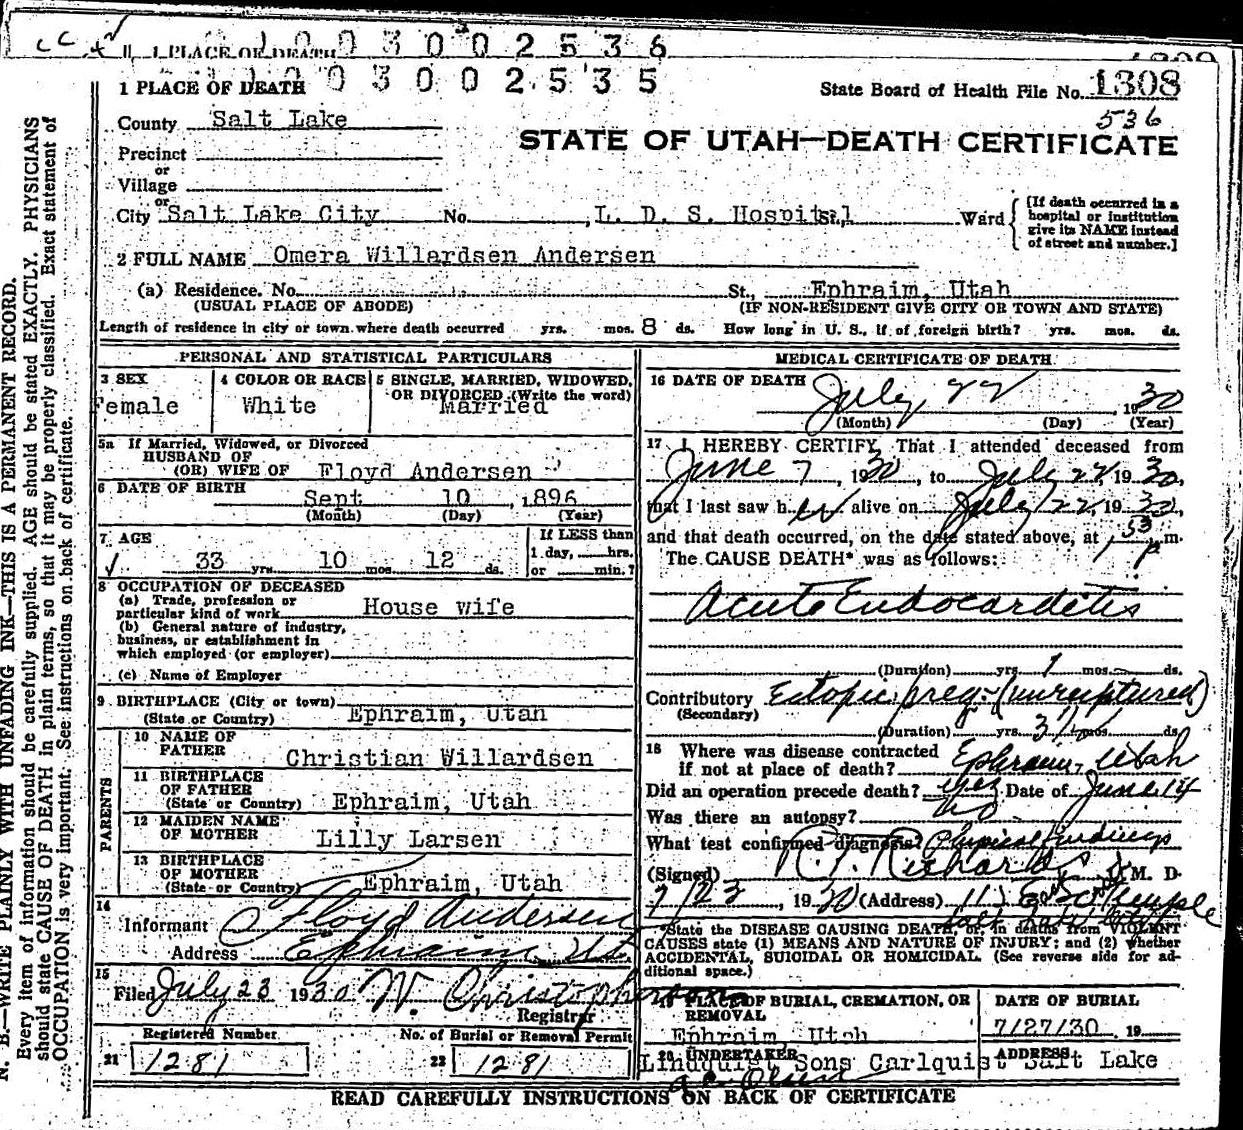 1 PLACE OF DEATH
1 0 0 3 0 0 2 5 3 6
1 PLACE OF DEATH
1 0 0 3 0 0 2 5 3 5
State Board of Health File No. 1308
536
County Salt Lake
STATE OF UTAH—DEATH CERTIFICATE
Precinct
or
Village
or
City Salt Lake City No. , L. D. S. Hospital Ward
[If death occurred in a hospital or institution give its NAME instead of street and number.]
2 FULL NAME Omera Willardsen Andersen
(a) Residence. No. St., Ephraim, Utah
(USUAL PLACE OF ABODE) (IF NON-RESIDENT GIVE CITY OR TOWN AND STATE)
Length of residence in city or town where death occurred yrs. mos. 8 ds. How long in U. S., if of foreign birth? yrs. mos. ds.
PERSONAL AND STATISTICAL PARTICULARS
3 SEX
Female
4 COLOR OR RACE
White
5 SINGLE, MARRIED, WIDOWED,
OR DIVORCED (Write the word)
Married
5a If Married, Widowed, or Divorced
HUSBAND OF
(OR) WIFE OF Floyd Andersen
6 DATE OF BIRTH
Sept 10 , 1896
(Month) (Day) (Year)
7 AGE
33 yrs. 10 mos. 12 ds.
If LESS than
1 day, hrs.
or min.?
8 OCCUPATION OF DECEASED
(a) Trade, profession or
particular kind of work House wife
(b) General nature of industry,
business, or establishment in
which employed (or employer)
(c) Name of Employer
9 BIRTHPLACE (City or town)
(State or Country) Ephraim, Utah
PARENTS
10 NAME OF
FATHER Christian Willardsen
11 BIRTHPLACE
OF FATHER
(State or Country) Ephraim, Utah
12 MAIDEN NAME
OF MOTHER Lilly Larsen
13 BIRTHPLACE
OF MOTHER
(State or Country) Ephraim, Utah
14
Informant Floyd Andersen
Address Ephraim Ut
15
Filed July 23 1930 W. Christopherson
Registrar
Registered Number.
21 1281
No. of Burial or Removal Permit
22 1281
MEDICAL CERTIFICATE OF DEATH
16 DATE OF DEATH July 22 , 1930
(Month) (Day) (Year)
17 I HEREBY CERTIFY, That I attended deceased from
June 7 , 1930, to July 22, 1930,
that I last saw her alive on July 22, 1930,
and that death occurred, on the date stated above, at 1 53 p m.
The CAUSE DEATH* was as follows:
Acute Endocarditis
(Duration) yrs. 1 mos. ds.
Contributory Ectopic preg- (unruptured)
(Secondary)
(Duration) yrs. 3 mos. ds.
18 Where was disease contracted
if not at place of death? Ephraim, Utah
Did an operation precede death? yes Date of June 14
Was there an autopsy? no
What test confirmed diagnosis? Physical findings
(Signed) R. T. Richards M. D.
7/23 , 1930 (Address) E So Temple
Salt Lake City
*State the DISEASE CAUSING DEATH, or, in deaths from VIOLENT
CAUSES state (1) MEANS AND NATURE OF INJURY; and (2) whether
ACCIDENTAL, SUICIDAL OR HOMICIDAL. (See reverse side for ad-
ditional space.)
19 PLACE OF BURIAL, CREMATION, OR
REMOVAL
Ephraim, Utah
DATE OF BURIAL
7/27/30 19
20 UNDERTAKER
Lindquist Sons Carlquist
ADDRESS
Salt Lake
READ CAREFULLY INSTRUCTIONS ON BACK OF CERTIFICATE
N. B.—WRITE PLAINLY WITH UNFADING INK—THIS IS A PERMANENT RECORD.
Every item of information should be carefully supplied. AGE should be stated EXACTLY. PHYSICIANS
should state CAUSE OF DEATH in plain terms, so that it may be properly classified. Exact statement of
OCCUPATION is very important. See instructions on back of certificate.